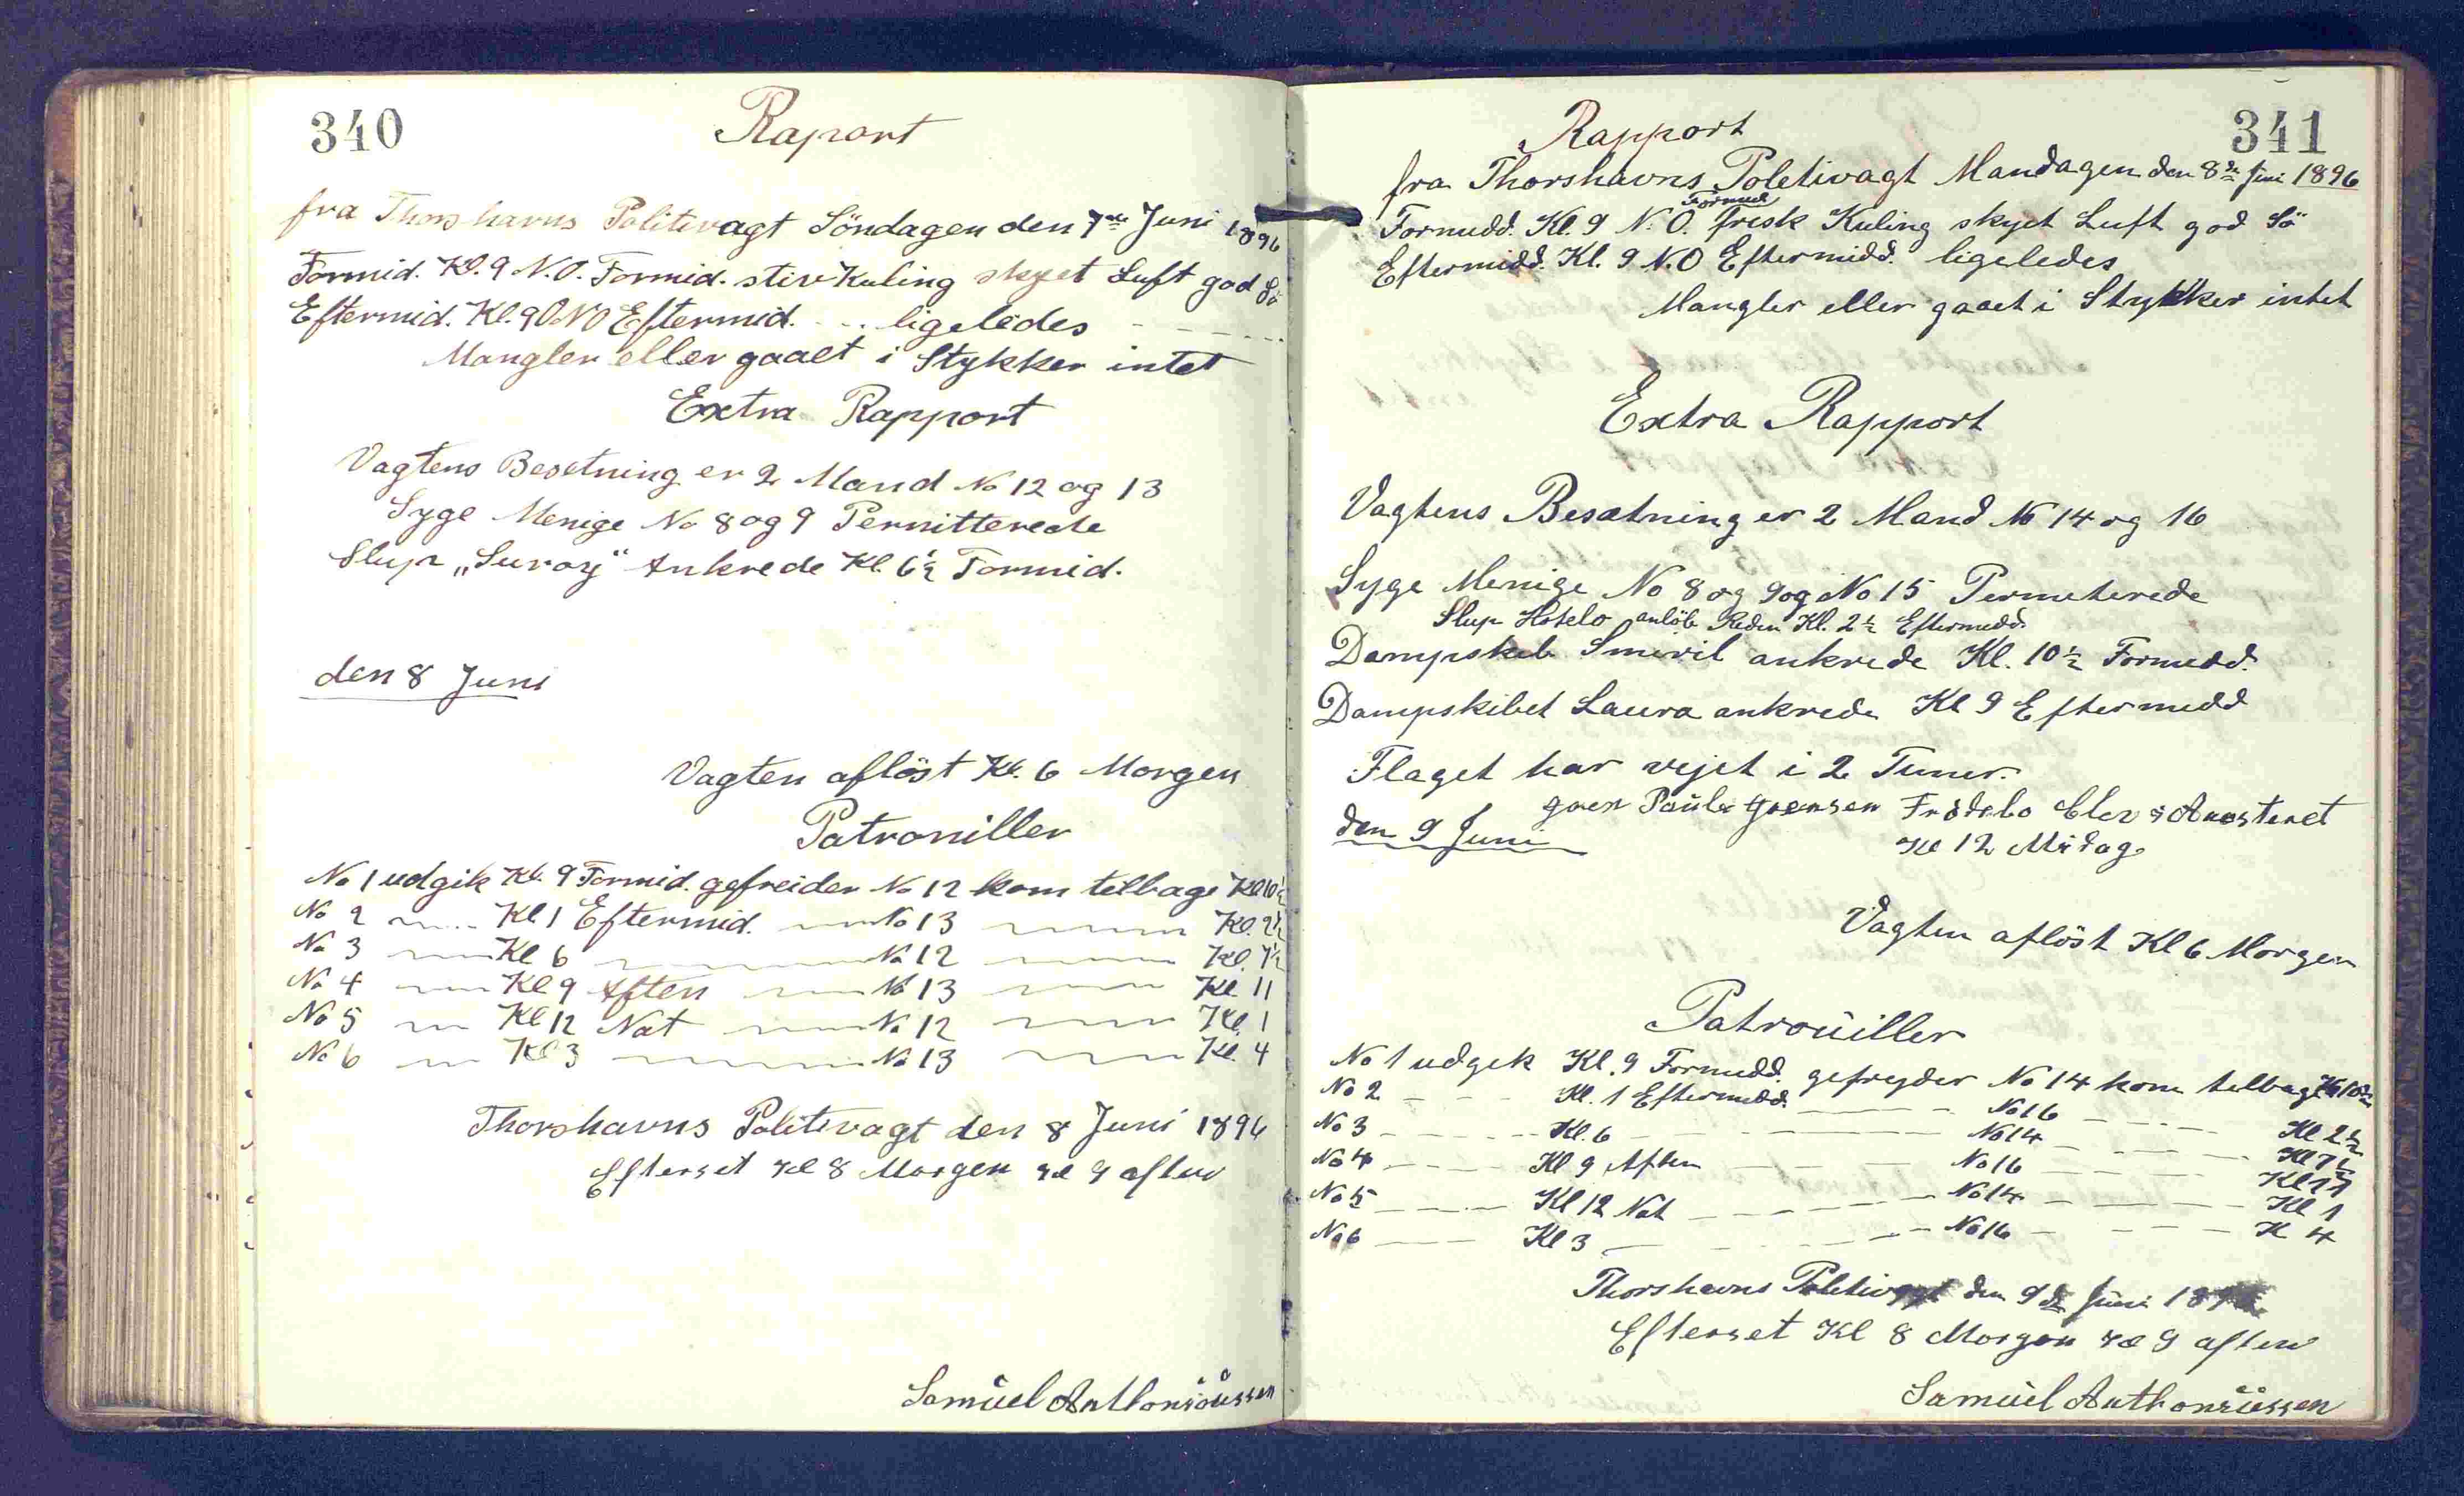 340
Raport
fra Thorshavns Politivagt Söndagen den 7de Juni 1896
Formid. Kl. 9 N.O. Formid. stiv Kuling skyet Luft god Sö
Eftermid. Kl. 9 ONO Eftermid. ... ligeledes
Mangler eller gaaet i Stykker intet
Extra Rapport
Vagtens Besetning er 2 Mand No 12 og 13
Syge Menige No 8 og 9 Permitterede
Slup „Suroy“ Ankrede Kl. 6½ Formid.
den 8 Juni
Vagten aflöst Kl. 6 Morgen
Patrouiller
No 1 udgik Kl. 9 Formid. gefreider No 12 kom telbage Kl 10½
No 2 Kl 1 Eftermid. No 13 Kl. 2½
No 3 Kl 6 No 12 Kl. 7½
No 4 Kl 9 Aften No 13 Kl 11
No 5 Kl 12 Nat No 12 Kl. 1
No 6 Kl 3 No 13 Kl. 4
Thorshavns Politivagt den 8 Juni 1896
Efterset Kl 8 Morgen Kl 9 aften
Samüel Anthoniüssen
341
Rapport
fra Thorshavns Poletivagt Mandagen den 8de Juni 1896
Formidd. Kl. 9 N.O. Formid frisk Kuling skyet Luft god Sö
Eftermidd. Kl. 9 N.O Eftermidd. ligeledes
Mangler eller gaaet i Stykker intet
Extra Rapport
Vagtens Besætning er 2 Mand No 14 og 16
Syge Menige No 8 og 9 og No 15 Permeterede
Slup Hotelo anlöb Reden Kl. 2½ Eftermidd.
Dampskib Smiril ankrede Kl. 10½ Formidd.
Dampskibet Laura ankrede Kl 9 Eftermidd
Flaget har vejet i 2 Timer.
Joen Paule Joensen Frodebo Arosteret
Kl 12 Midag
den 9 Juni
Vagten aflöst Kl 6 Morgen
Patroüiller
No 1 udgek Kl. 9 Formidd. gefreyder No 14 kom telbage Kl 10½
No 2 Kl. 1 Eftermidd. No 16 Kl 2½
No 3 Kl. 6 No 14 Kl 7½
No 4 Kl 9 Aften No 16 Kl 11
No 5 Kl 12 Nat No 14 Kl 1
No 6 Kl 3 No 16 K 4
Thorshavns Poletivagt den 9de Juni 1896
Efterset Kl 8 Morgen Kl 9 aften
Samüel Anthoniüssen